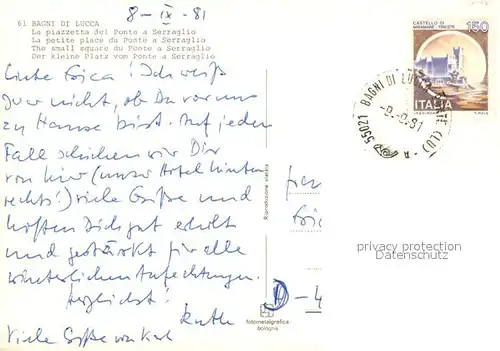 8-IX-81
61 BAGNI DI LUCCA
La piazzetta del Ponte a Serraglio
La petite place du Ponte a Serraglio
The small square du Ponte a Serraglio
Der kleine Platz vom Ponte a Serraglio
Liebe Erica! Ich weiß
zwar nicht, ob Du vor uns
zu Hause bist. Auf jeden
Fall schicken wir Dir
von hier (unser Hotel hinten
rechts!) viele Grüße und
hoffen Dich gut erholt
und gestärkt für alle
winterlichen Anfechtungen.
Herzlichst!
Ruth
Viele Grüße von Karl
Riproduzione vietata
fotometalgrafica
bologna
D-4
CASTELLO DI
MIRAMARE - TRIESTE
150
ITALIA
55021 BAGNI DI LUCCA
privacy protection
DatenSchutz